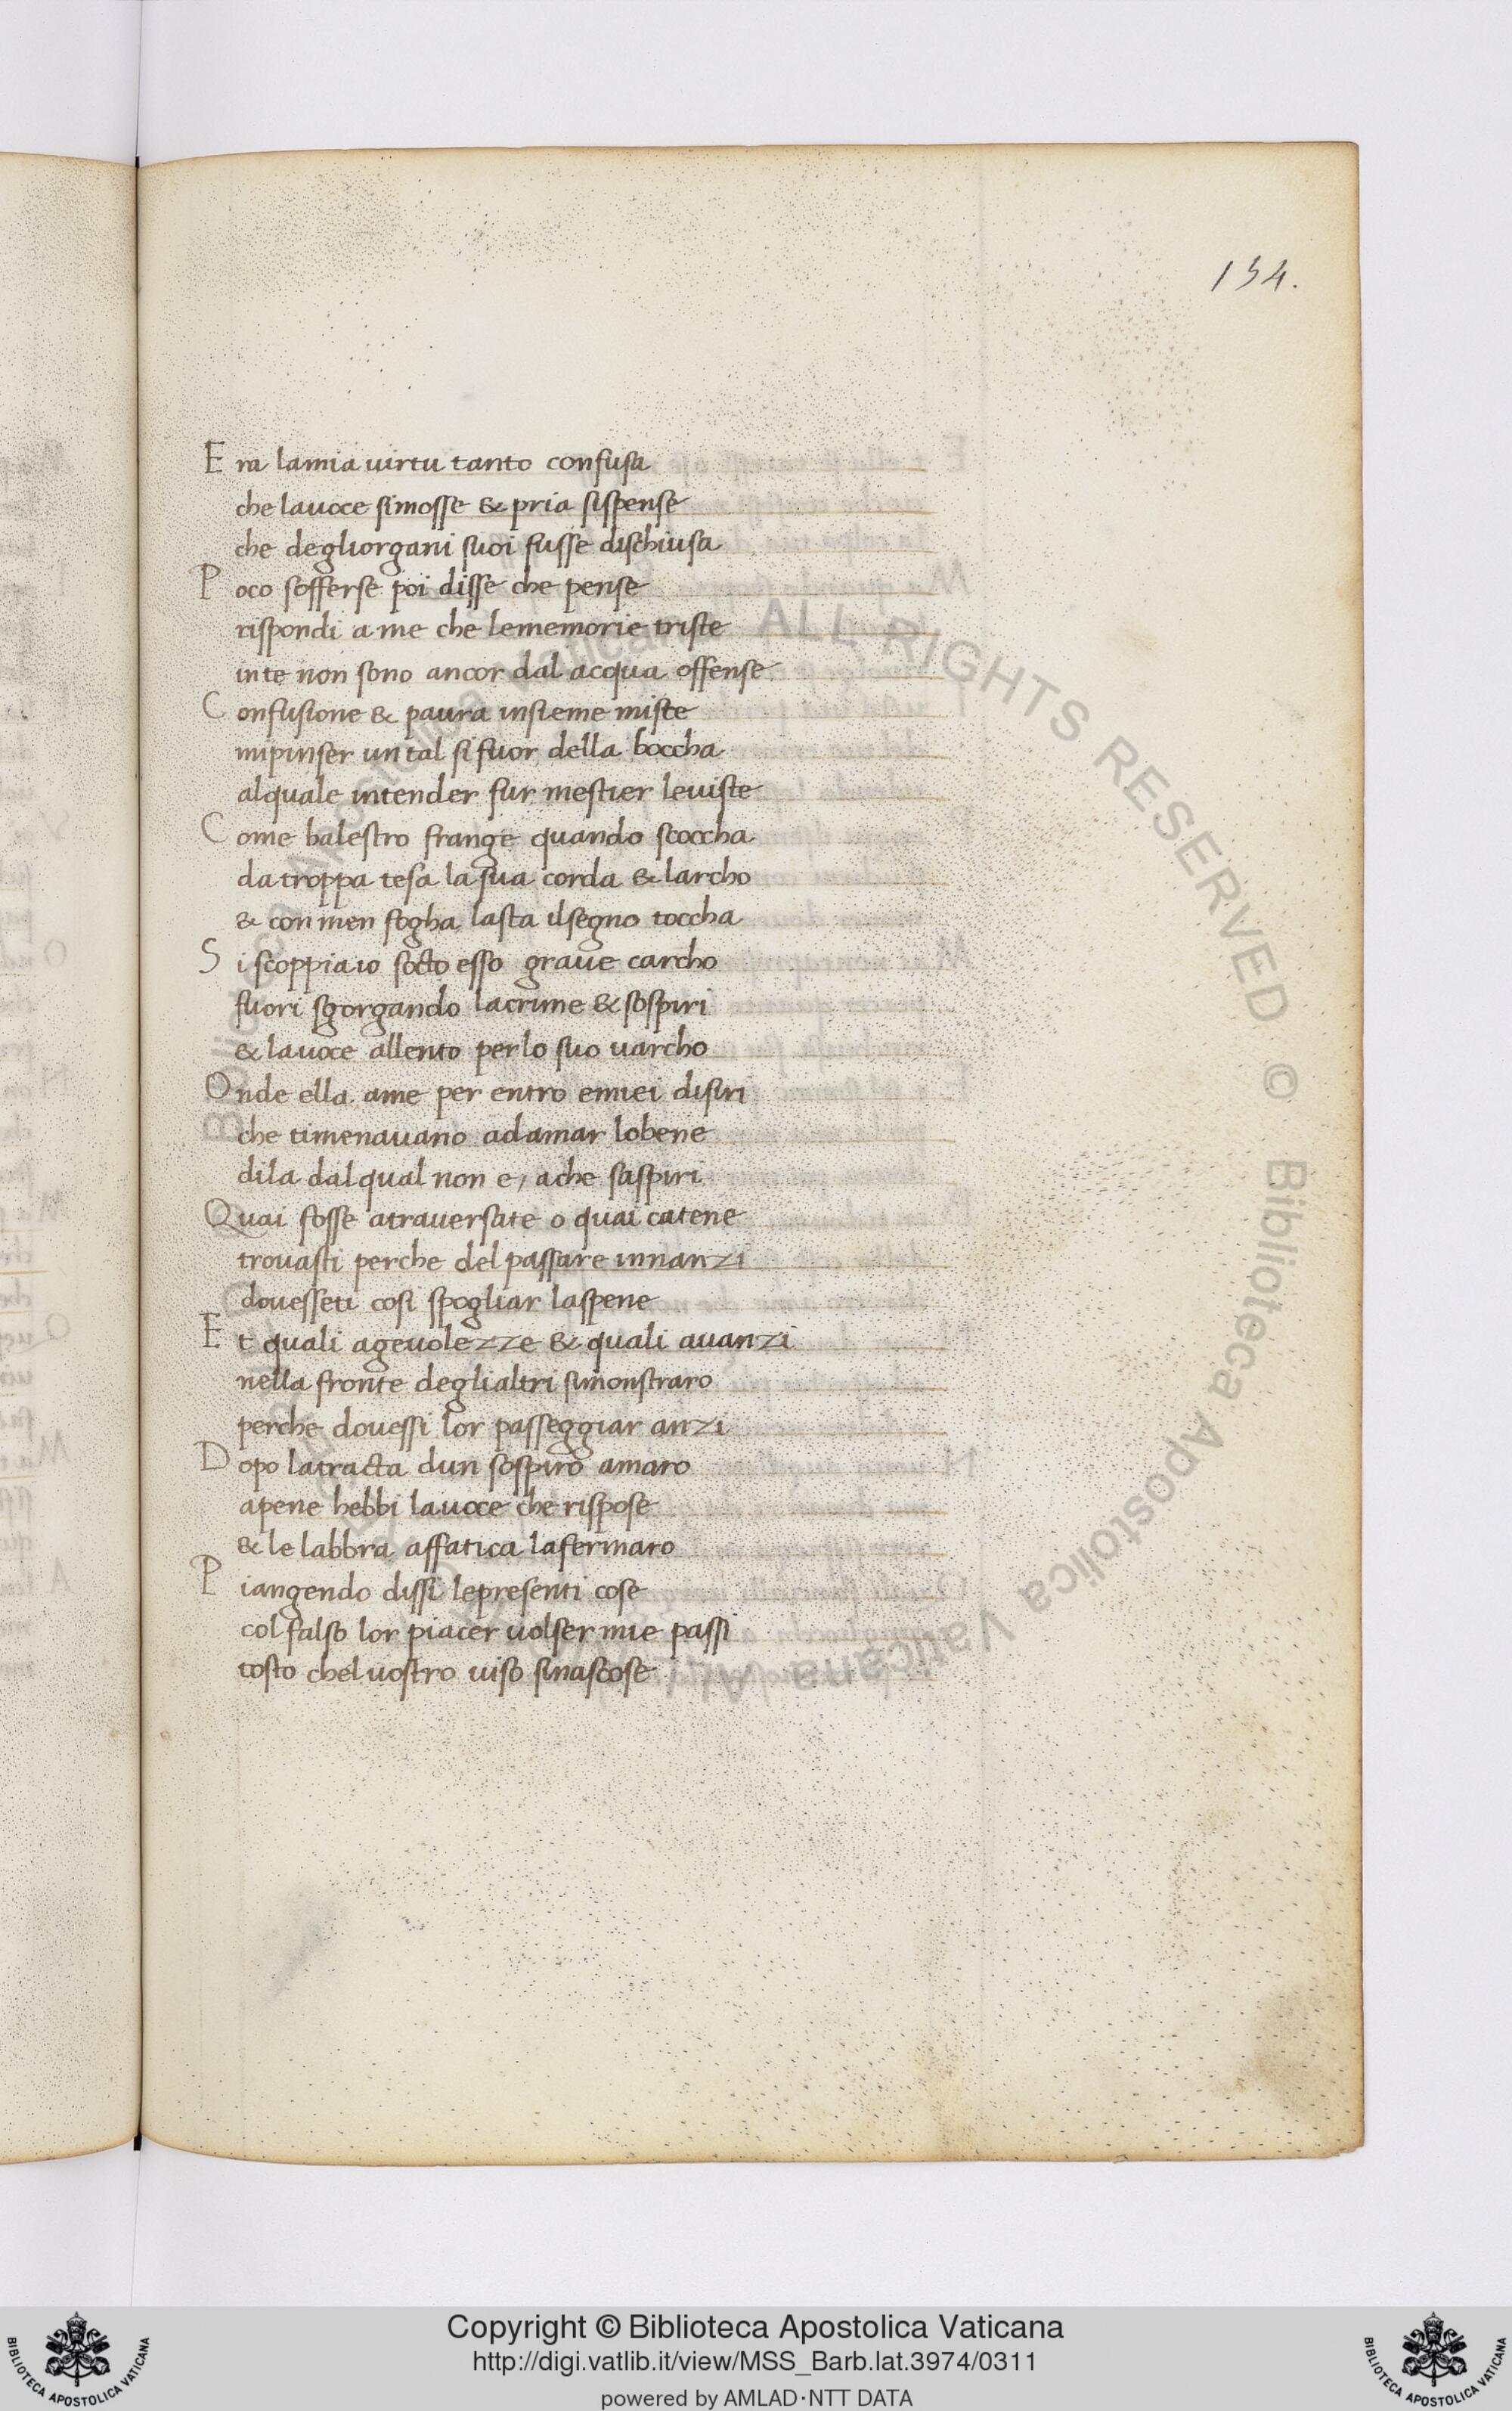 154.
E ra lamia uirtu tanto confusa
che lauoce simosse & pria sispense
che degliorgani suoi fusse dischiusa
P oco sofferse poi disse che pense
rispondi a me che lememorie triste
inte non sono ancor dal acqua offense
C onfusione & paura insieme miste
mipinser un tal si fuor della boccha
alquale intender fur mestier leuiste
C ome balestro frange quando scoccha
da troppa tesa la sua corda & larcho
& con men fogha lasta ilsegno toccha
S i scoppiaio socto esso graue carcho
fuori sgorgando lacrime & sospiri
& lauoce allento perlo suo uarcho
O nde ella ame per entro emiei disiri
che timenauano adamar lobene
dila dalqual non e, ache saspiri
Q uai fosse atrauersate o quai catene
trouasti perche del passare innanzi
douesseti cosi spogliar laspene
E t quali ageuolezze & quali auanzi
nella fronte deglialtri simonstraro
perche douessi lor passeggiar anzi
D opo latracta dun sospiro amaro
apene hebbi lauoce che rispose
& le labbra affatica lafermaro
P iangendo dissi lepresenti cose
col falso lor piacer uolser mie passi
tosto chel uostro uiso sinascose
Biblioteca Apostolica Vaticana ALL RIGHTS RESERVED ©
Copyright © Biblioteca Apostolica Vaticana
http://digi.vatlib.it/view/MSS_Barb.lat.3974/0311
powered by AMLAD·NTT DATA
BIBLIOTECA APOSTOLICA VATICANA
BIBLIOTECA APOSTOLICA VATICANA